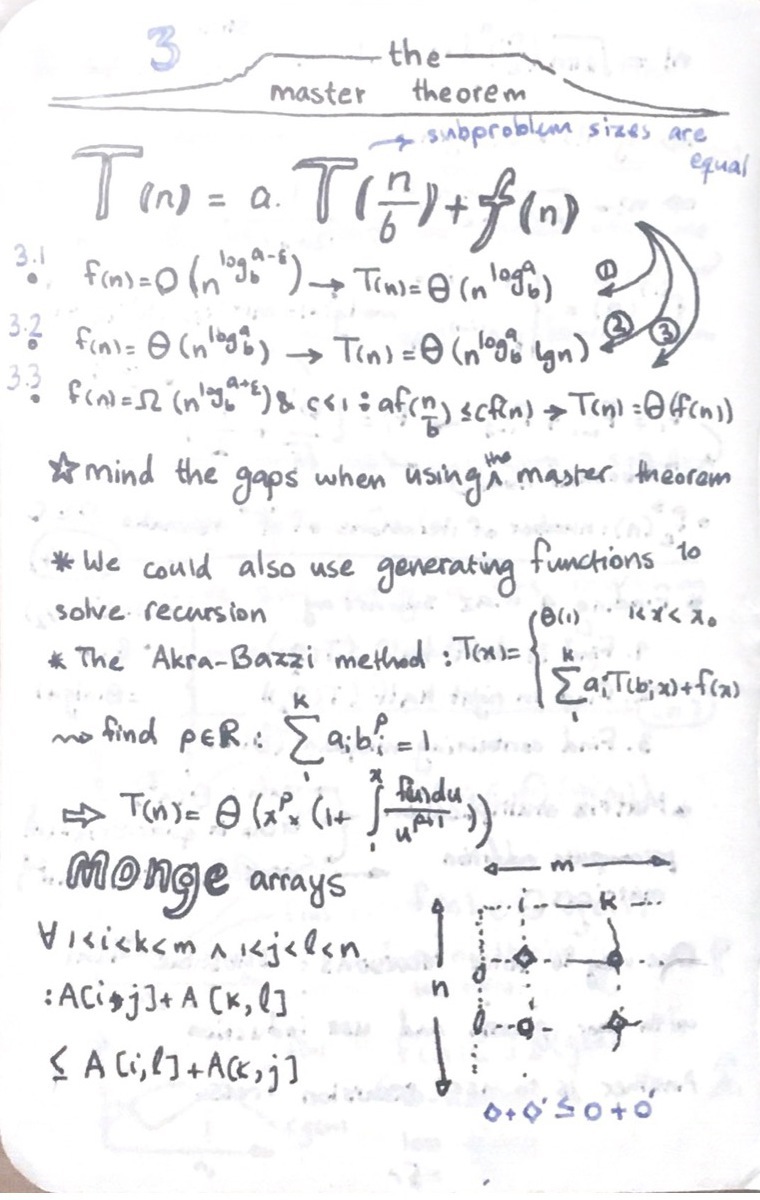 3
the
master theorem
→ subproblem sizes are
equal
T(n) = a. T(n/b) + f(n)
3.1 • f(n)=O(n^{log_b^{a-ε}}) → T(n)=Θ(n^{log_b^a}) ①
3.2 • f(n)=Θ(n^{log_b^a}) → T(n)=Θ(n^{log_b^a} lgn) ② ③
3.3 • f(n)=Ω(n^{log_b^{a+ε}}) & c<1 : af(n/b) ≤ cf(n) → T(n)=Θ(f(n))
☆ mind the gaps when using the master theorem
* We could also use generating functions to
solve recursion
* The Akra-Bazzi method : T(x)= { Θ(1) 1<x<x₀
∑_1^k a_i T(b_i x)+f(x)
⇝ find p∈ℝ : ∑_1^k a_i b_i^p = 1
⇒ T(n)= Θ(x^p × (1+ ∫_1^x f(u)du / u^{p+1}))
Monge arrays
← m →
i k
∀ 1<i<k<m ∧ 1<j<l<n
j
: A[i,j]+A[k,l]
n
l
≤ A[i,l]+A[k,j]
◇+◇' ≤ o+o'